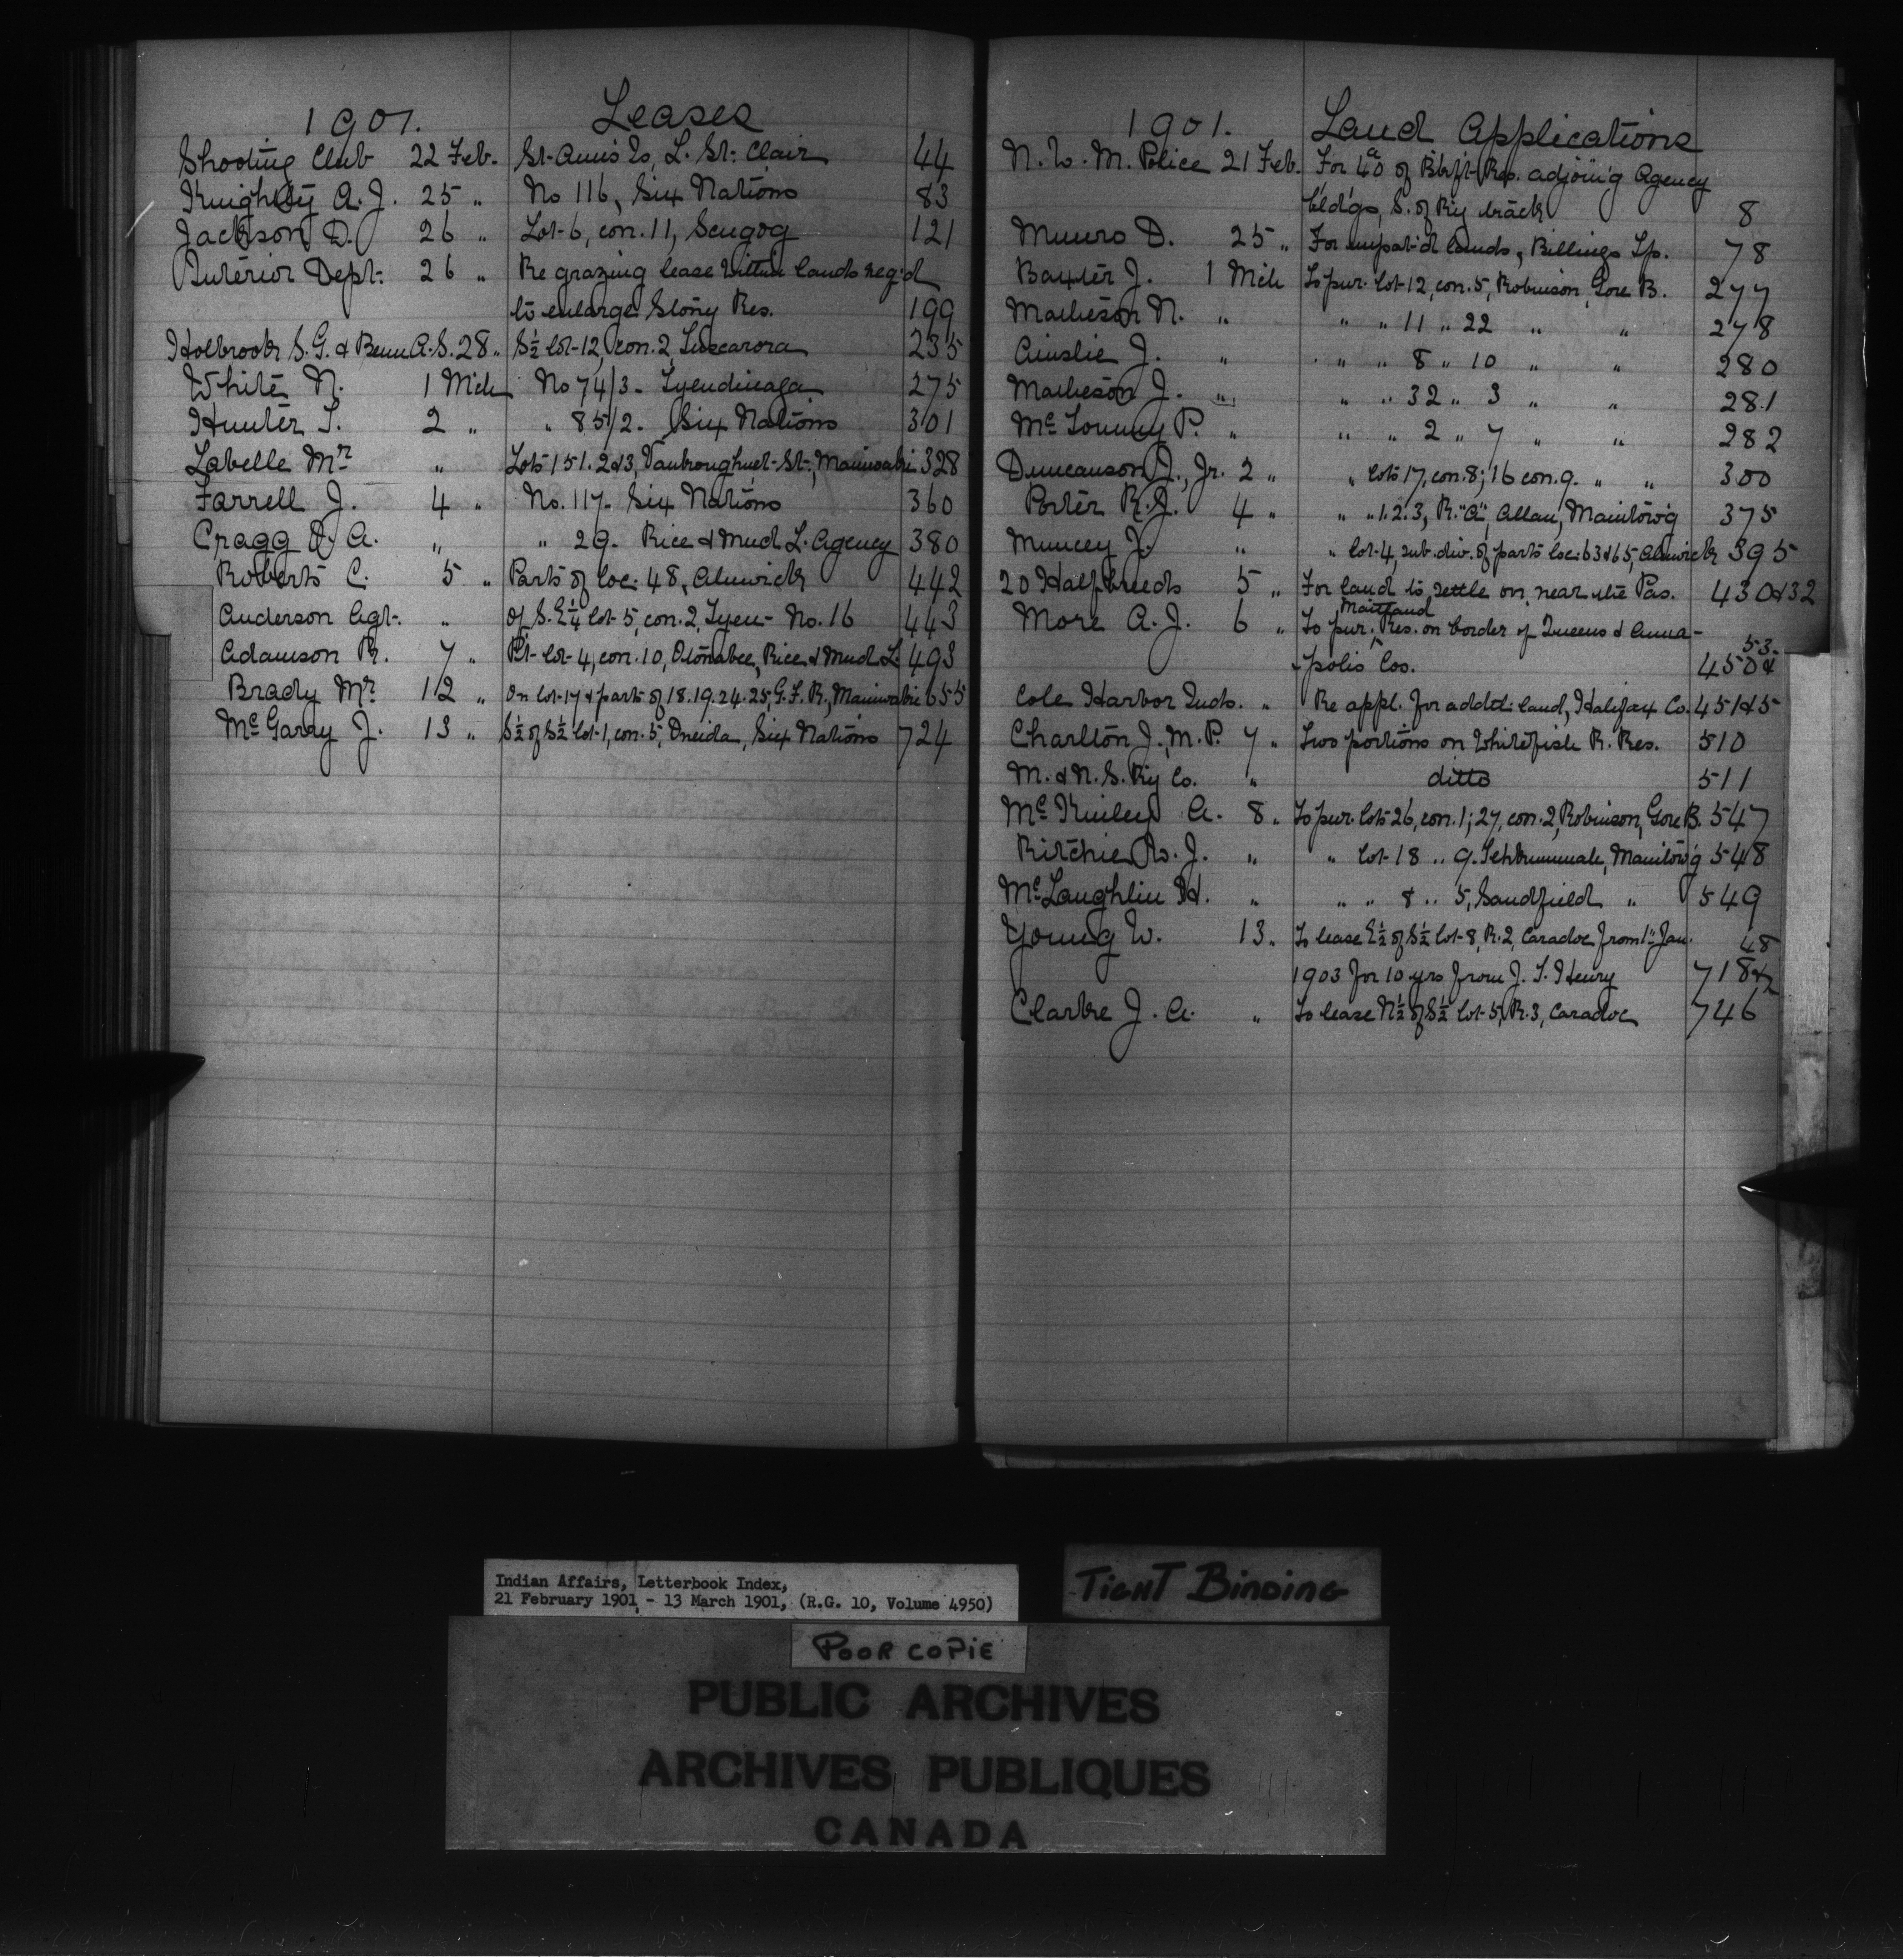 1901.
Leases
Shooting Club 22 Feb. St. Ann's Is, L. St. Clair 44
Knightly A. J. 25 " No 116, Six Nations 83
Jackson D. 26 " Lot 6, con. 11, Scugog 121
Interior Dept. 26 " Re grazing lease within lands req'd
to enlarge Stony Res. 199
Holbrook S. G. & Benn A. S. 28 " S½ lot 12, con. 2, Tuscarora 235
White N. 1 Mch No 74/3 - Tyendinaga 275
Hunter T. 2 " " 85/2. Six Nations 301
Labelle Mr " Lots 151. 2 & 3, St., Maniwaki 328
Farrell J. 4 " No. 117. Six Nations 360
Cragg D. A. " " 29. Rice & Mud L. Agency 380
Roberts C. 5 " Parts of loc. 48, Alnwick 442
Anderson Agt. " of S. E¼ lot 5, con. 2, Tyen - No. 16 443
Adamson R. 7 " Pt. lot 4, con. 10, Otonabee, Rice & Mud L. 493
Brady Mr 12 " On lot 17 & parts of 18. 19. 24. 25, G. F. R., Maniwaki 655
McGarry J. 13 " S½ of S½ lot 1, con. 5, Oneida, Six Nations 724
1901.
Land Applications
N. W. M. Police 21 Feb. For 40a of Blkft. Res. adjoin'g Agency
bld'gs, S. of R'y track 8
Munro D. 25 " For unpat'd lands, Billings Tp. 78
Baxter J. 1 Mch To pur. lot 12, con. 5, Robinson, Gore B. 277
Matheson N. " " " 11 " 22 " " 278
Ainslie J. " " " 8 " 10 " " 280
Matheson J. " " " 32 " 3 " " 281
Mc P. " " " 2 " 7 " " 282
Duncanson J., Jr. 2 " " lots 17, con. 8; 16 con. 9. " " 300
Porter R. J. 4 " " " 1. 2. 3, R. "A", Allan, Manitow'g 375
Muncey J. " " lot 4, sub. div. of parts loc. 63 & 65, Alnwick 395
20 Halfbreeds 5 " For land to settle on near the Pas. 430 & 32
More A. J. 6 " To pur. Maitland Res. on border of Queens & Anna-
-polis Cos. 450 & 53.
Cole Harbor Inds. " Re appl. for addtl. land, Halifax Co. 451 & 5
Charlton J., M. P. 7 " Two portions on Whitefish R. Res. 510
M. & N. S. R'y Co. " ditto 511
McKinley A. 8 " To pur. lots 26, con. 1; 27, con. 2, Robinson, Gore B. 547
Ritchie W. J. " " lot 18 " 9. Tehkummah, Manitow'g 548
McLaughlin H. " " " 8 " 5, Sandfield " 549
Young W. 13 " To lease E½ of S½ lot 8, R. 2, Caradoc from 1st Jan.
1903 for 10 yrs from J. T. Henry 718 & 48
Clarke J. A. " To lease N½ of S½ lot 5, R. 3, Caradoc 746
Indian Affairs, Letterbook Index,
21 February 1901 - 13 March 1901, (R.G. 10, Volume 4950)
TIGHT BINDING
POOR COPIE
PUBLIC ARCHIVES
ARCHIVES PUBLIQUES
CANADA